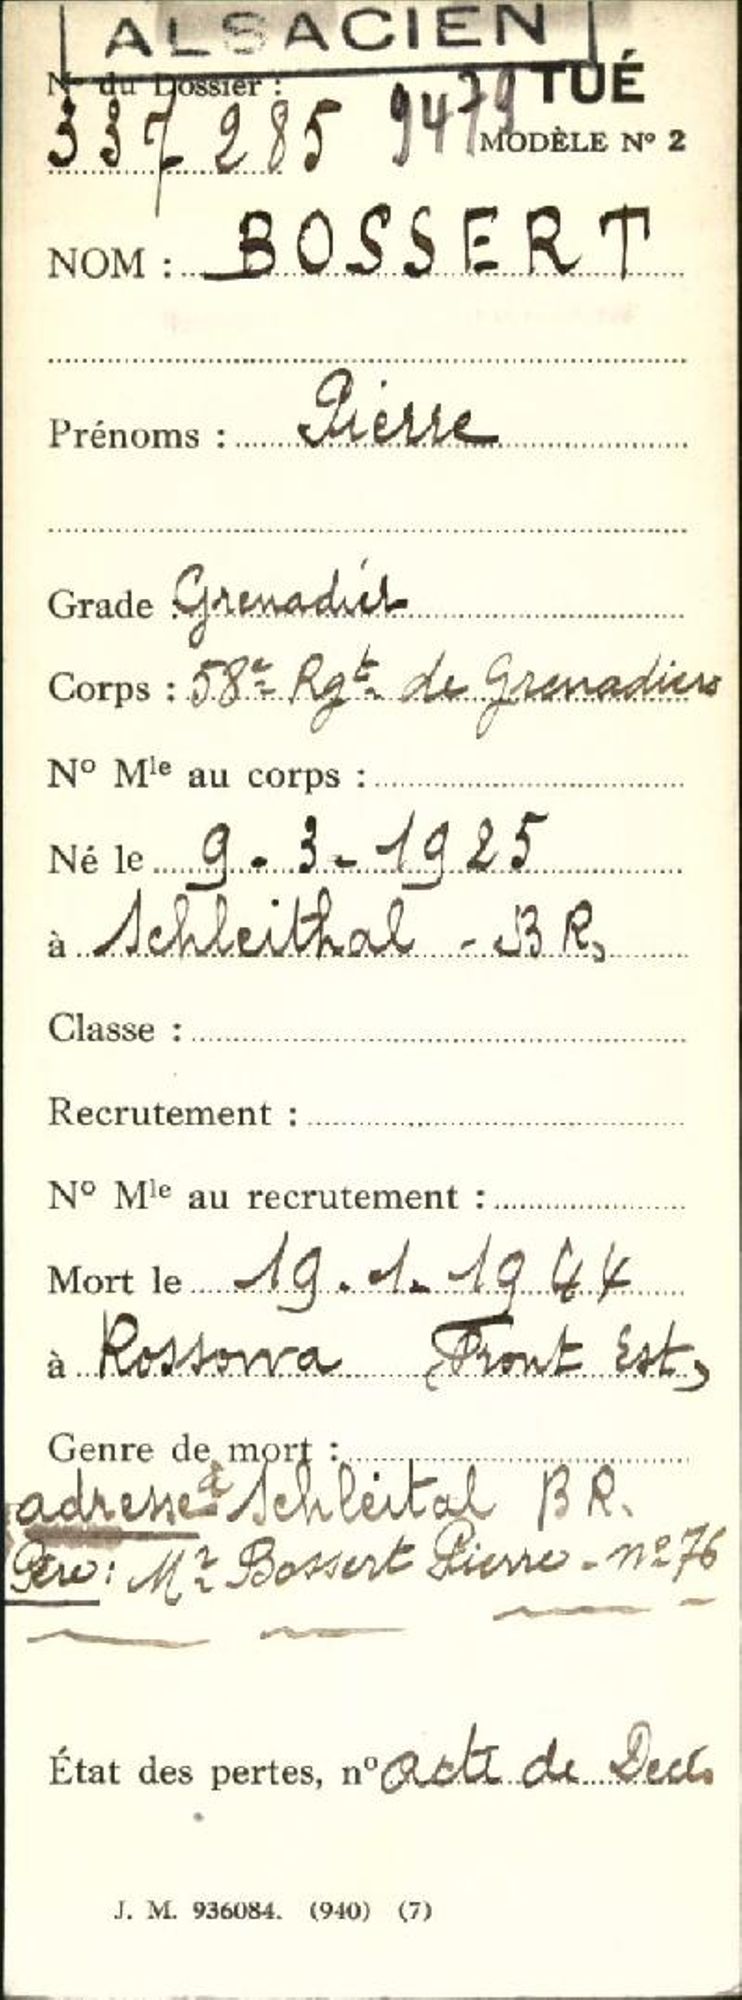 ALSACIEN
N° du Dossier :
TUÉ
337 285 9479
MODÈLE N° 2
NOM : BOSSERT
Prénoms : Pierre
Grade : Grenadier
Corps : 58e Rgt. de Grenadiers
N° Mle au corps :
Né le 9-3-1925
à Schleithal - B R.
Classe :
Recrutement :
N° Mle au recrutement :
Mort le 19.1.1944
à Rossowa Front Est,
Genre de mort :
adresse à Schleital B R.
Père : Mr Bossert Pierre - n° 76
État des pertes, n° acte de Decs
J. M. 936084. (940) (7)